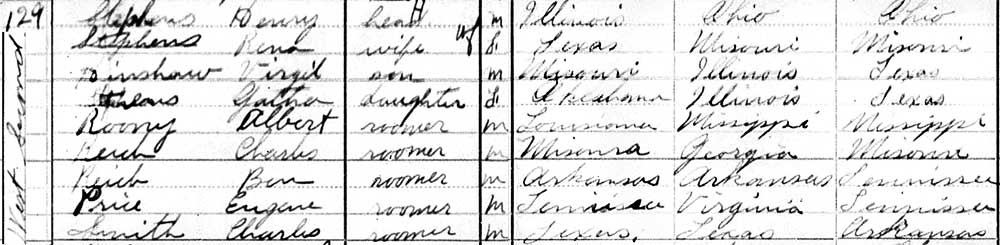 129 Stephens Henry head m Illinois Ohio Ohio
Stephens Rena wife f Texas Misouri Misouri
Binshaw Virgil son m Misouri Illinois Texas
daughter f Oklahoma Illinois Texas
Roony Albert roomer m Louisiana Missippi Missippi
Charles roomer m Georgia Misouri
Ben roomer m Arkansas Arkansas Tennissee
Price Eugene roomer m Tennissee Virginia Tennissee
Smith Charles roomer m Texas Texas Arkansas
West Second